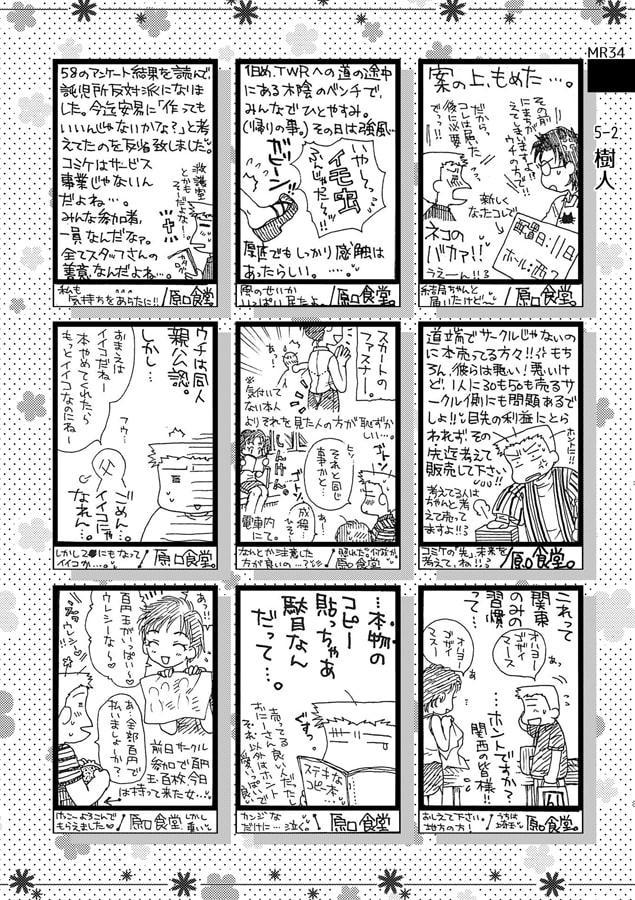 MR34
5-2 樹人
案の上、もめた…。
だから、
コレは届いた
後に必要
新しく
なったコレで
配置日:11日
ホール:西7
ネコの
バカァ!!
うえーん!!
届いたけど〜
原口食堂。
伯め、TWRへの道の途中
にある木陰のベンチで、
みんなでひとやすみ。
(帰りの事。)その日は強風…
いやーん。
イモ虫
ふんじゃったー!!
ガビーン
厚底でもしっかり感触は
あったらしい。……。
風のせいか
いっぱい居たよ。
原口食堂。
58のアンケート結果を読んで、
託児所反対派になりま
した。今迄安易に「作っても
いいんじゃないかな?」と考
えてたのを反省致しました
コミケはサービス
事業じゃないん
だよね…。
みんな参加者、
一員なんだなァ。
全てスタッフさんの
善意なんだよね…。
救護室
とかも
そーだよな!
私も
気持ちをあらたに!!
原口食堂。
道端でサークルじゃないの
に本売ってる方々!!もち
ろん彼らは悪い!悪いけ
ど、1人に30も50も売るサ
ークル側にも問題あるで
しょ!!目先の利益にとら
われず、その
先迄考えて
販売して下さ
い!!
ホントに!!
考えてる人は
ちゃんと考え
て売って
ますよ
コミケの「先」、未来を
考えて、ね!!
原口食堂。
スカートの
ファスナー。
※気付いて
ない本人
よりそれを見た人の方が恥ずか
しい…。
ガトン
ゴトン
それと同じ
事かと…。
成程…
電車内
にて。
なんとか注意した
方が良いの…?
原口食堂。
ウチは同人
親公認。
しかし…
おまえは
イイコだね―
本やめてくれたら
もっとイイコなのにね―
フゥ…
父
ごめん…
イイコにゃ
なれん。
原口食堂。
これって
関東
のみの
習慣
って…
オハヨー
ゴザイ
マース
オハヨー
ゴザイ
マース
あ。
…ホントですか?
関西の皆様!!
おしえて下さい。
地方の方!
うちは
埼玉
原口食堂。
…本物の
コピー
貼っちゃあ
駄目なん
だって…。
ぐすっ
ステキな
コピー本。
売ってる
おにーさん
カンジな
だけに…泣く。
原口食堂。
あっ!!
百円玉がいっぱい〜
ウレシーな〜
あ、全部百円で
払いましょーか?
前日サークル
参加で百円
玉百枚今日
は持って来た女…
けっこーよろこんで
もらえました
しかし
重い
原口食堂。